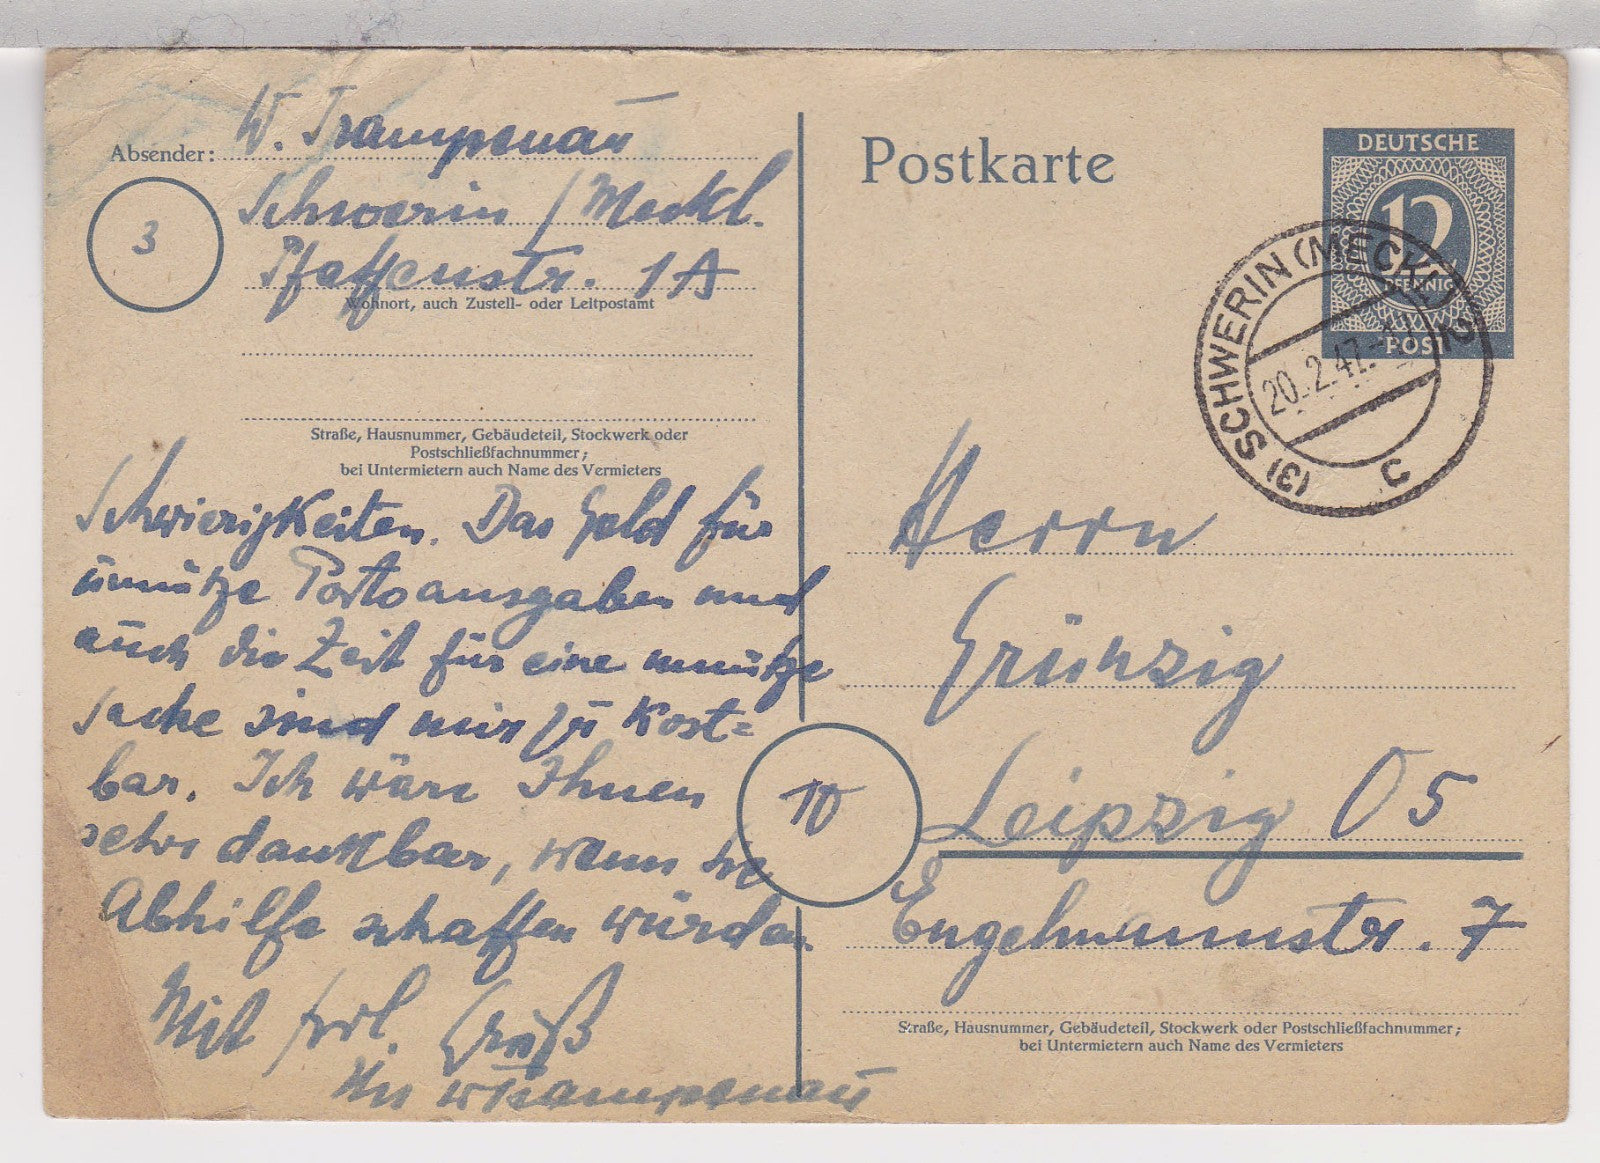 Absender: W. Trampenau
Schwerin / Meckl.
3
Pfaffenstr. 1A
Wohnort, auch Zustell- oder Leitpostamt
Straße, Hausnummer, Gebäudeteil, Stockwerk oder
Postschließfachnummer;
bei Untermietern auch Name des Vermieters
Schwierigkeiten. Das Geld für
unnütze Portoausgaben und
auch die Zeit für eine unnütze
Sache sind mir zu kost=
bar. Ich wäre Ihnen
sehr dankbar, wenn Sie
Abhilfe schaffen würden.
Mit frdl. Gruß
Ihr WTrampenau
Postkarte
DEUTSCHE
12
PFENNIG
POST
(3) SCHWERIN (MECKL) 2
20.2.47
c
Herrn
Grühzig
10
Leipzig O5
Engelmannstr. 7
Straße, Hausnummer, Gebäudeteil, Stockwerk oder Postschließfachnummer;
bei Untermietern auch Name des Vermieters